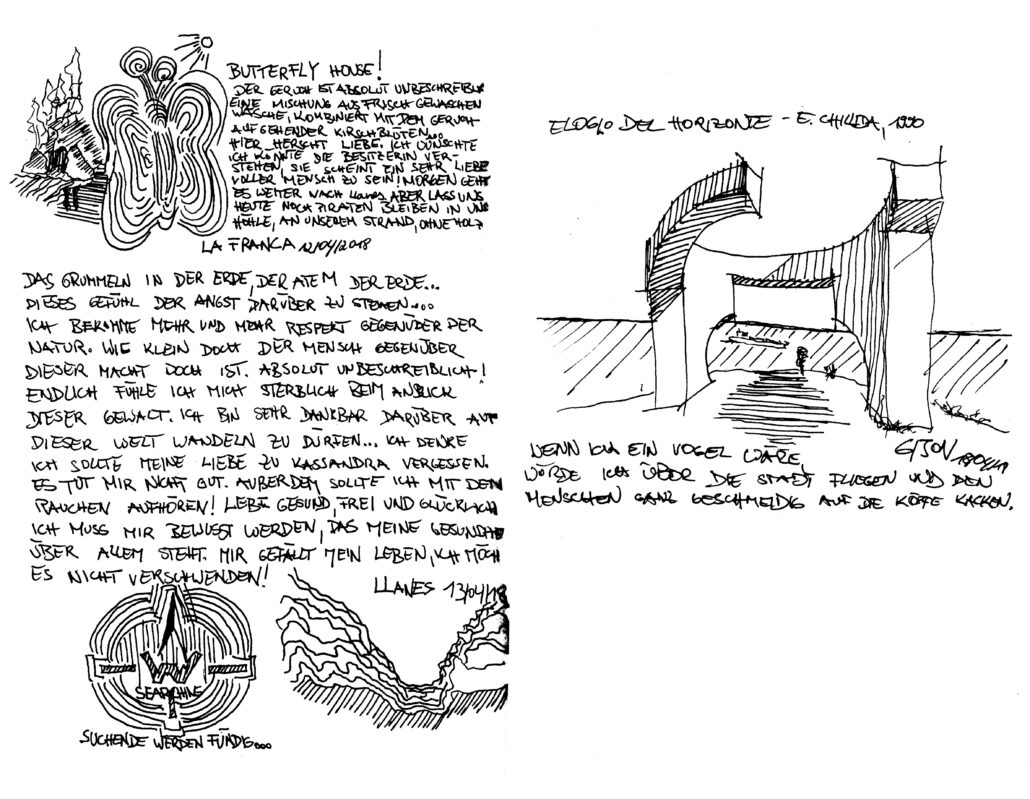 BUTTERFLY HOUSE!
DER GERUCH IST ABSOLUT UNBESCHREIBLI
EINE MISCHUNG AUS FRISCH GEWASCHEN
WÄSCHE, KOMBINIERT MIT DEM GERUCH
AUFGEHENDER KIRSCHBLÜTEN...
HIER HERSCHT LIEBE. ICH WÜNSCHTE
ICH KÖNNTE DIE BESITZERIN VER-
STEHEN, SIE SCHEINT EIN SEHR LIEBE
VOLLER MENSCH ZU SEIN! MORGEN GEHT
ES WEITER NACH LLANES, ABER LASS UNS
HEUTE NOCH PIRATEN BLEIBEN IN UNS
HÖHLE, AN UNSEREM STRAND, OHNE HOLZ
LA FRANCA 12/04/2018
DAS GRUMMELN IN DER ERDE, DER ATEM DER ERDE...
DIESES GEFÜHL DER ANGST DARÜBER ZU STEHEN...
ICH BEKOMME MEHR UND MEHR RESPEKT GEGENÜBER DER
NATUR. WIE KLEIN DOCH DER MENSCH GEGENÜBER
DIESER MACHT DOCH IST. ABSOLUT UNBESCHREIBLICH!
ENDLICH FÜHLE ICH MICH STERBLICH BEIM ANBLICK
DIESER GEWALT. ICH BIN SEHR DANKBAR DARÜBER AUF
DIESER WELT WANDELN ZU DÜRFEN... ICH DENKE
ICH SOLLTE MEINE LIEBE ZU KASSANDRA VERGESSEN.
ES TUT MIR NICHT GUT. AUßERDEM SOLLTE ICH MIT DEM
RAUCHEN AUFHÖREN! LEBE GESUND, FREI UND GLÜCKLICH
ICH MUSS MIR BEWUSST WERDEN, DAS MEINE GESUNDHE
ÜBER ALLEM STEHT. MIR GEFÄLLT MEIN LEBEN, ICH MÖCH
ES NICHT VERSCHWENDEN!
LLANES 13/04/18
SEARCHING
SUCHENDE WERDEN FÜNDIG...
ELOGIO DEL HORIZONTE - E. CHILLIDA, 1990
GIJON
WENN ICH EIN VOGEL WÄRE,
WÜRDE ICH ÜBER DIE STADT FLIEGEN UND DEN
MENSCHEN GANZ GESCHMEIDIG AUF DIE KÖPFE KACKEN.